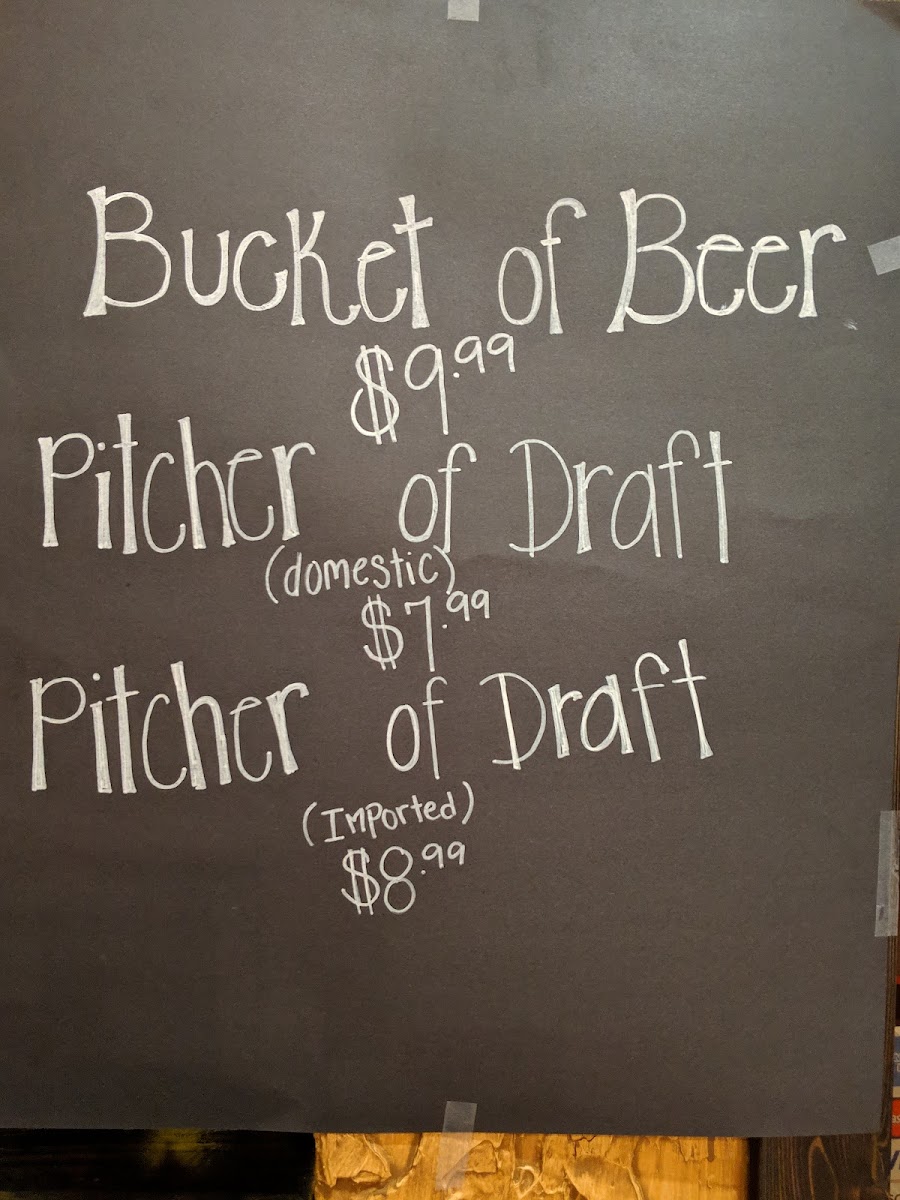 Bucket of Beer
$9.99
Pitcher of Draft
(domestic)
$7.99
Pitcher of Draft
(Imported)
$8.99